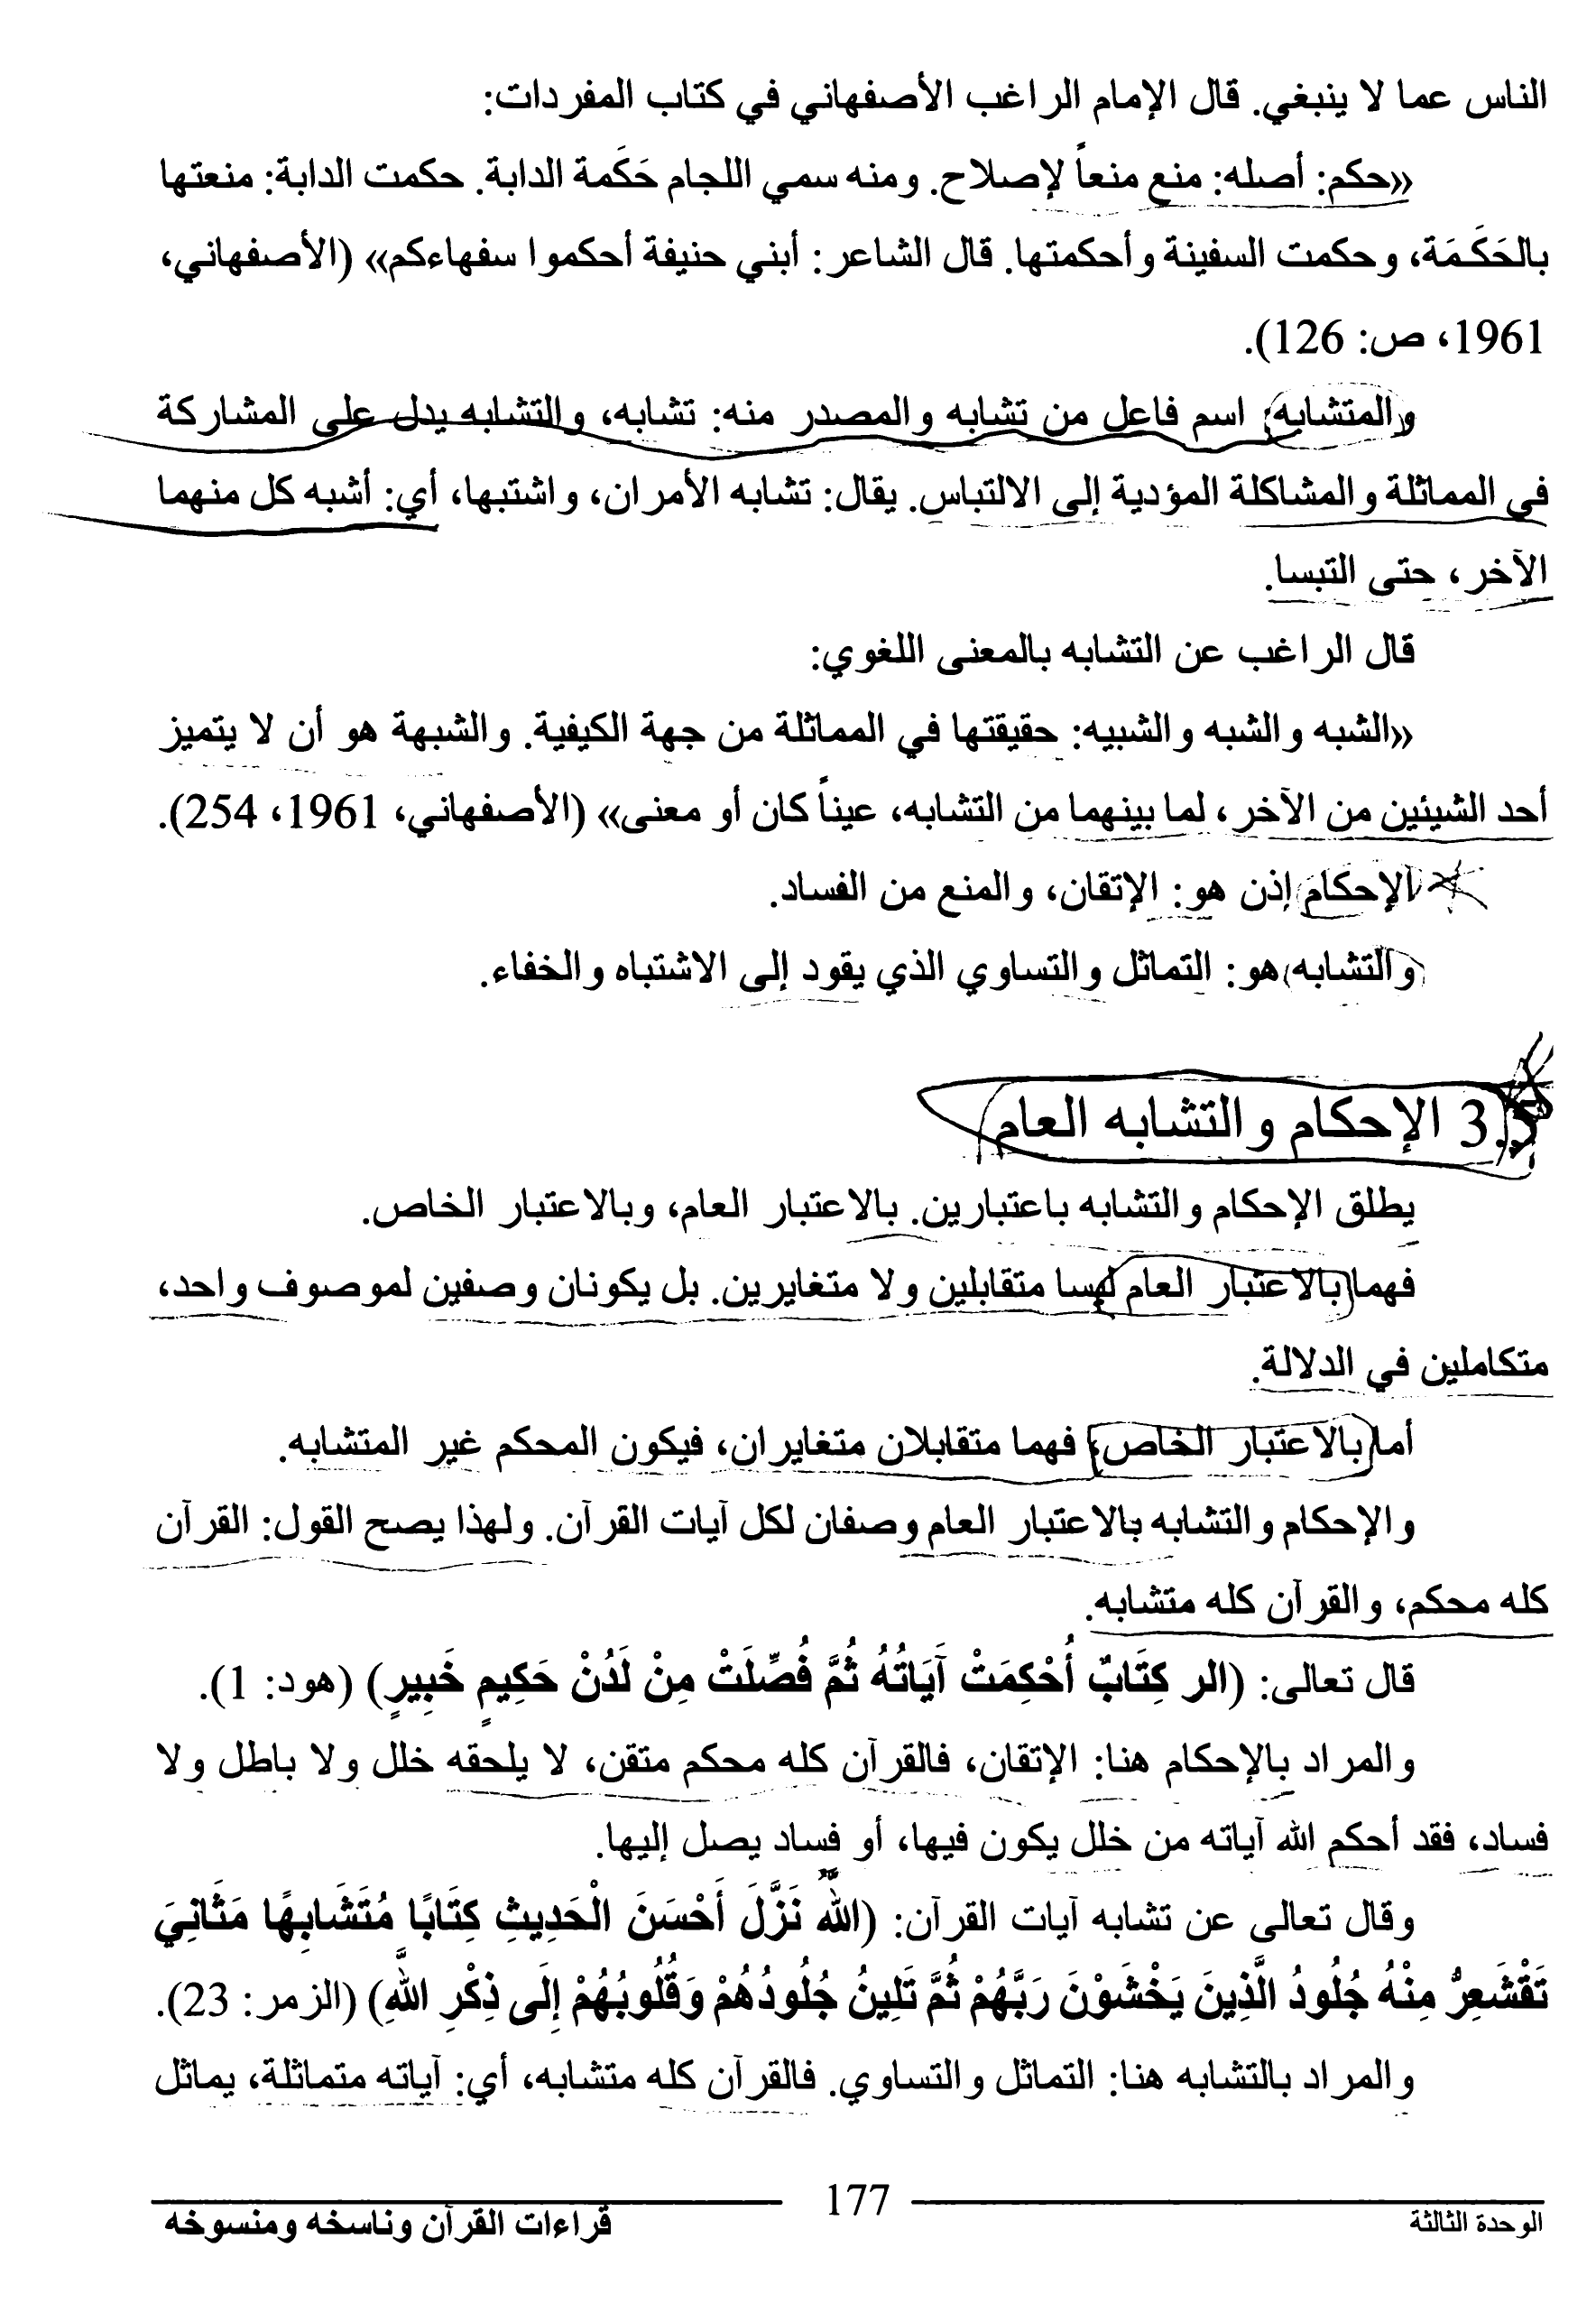 الناس عما لا ينبغي. قال الإمام الراغب الأصفهاني في كتاب المفردات:
«حكم: أصله: منع منعاً لإصلاح. ومنه سمي اللجام حَكَمة الدابة. حكمت الدابة: منعتها
بالحَكَمَة، وحكمت السفينة وأحكمتها. قال الشاعر: أبني حنيفة أحكموا سفهاءكم» (الأصفهاني،
1961، ص: 126).
والمتشابه: اسم فاعل من تشابه والمصدر منه: تشابه، والتشابه يدل على المشاركة
في المماثلة والمشاكلة المؤدية إلى الالتباس. يقال: تشابه الأمران، واشتبها، أي: أشبه كل منهما
الآخر، حتى التبسا.
قال الراغب عن التشابه بالمعنى اللغوي:
«الشبه والشبه والشبيه: حقيقتها في المماثلة من جهة الكيفية. والشبهة هو أن لا يتميز
أحد الشيئين من الآخر، لما بينهما من التشابه، عيناً كان أو معنى» (الأصفهاني، 1961، 254).
الإحكام إذن هو: الإتقان، والمنع من الفساد.
والتشابه هو: التماثل والتساوي الذي يقود إلى الاشتباه والخفاء.
3.5 الإحكام والتشابه العام
يطلق الإحكام والتشابه باعتبارين. بالاعتبار العام، وبالاعتبار الخاص.
فهما بالاعتبار العام ليسا متقابلين ولا متغايرين. بل يكونان وصفين لموصوف واحد،
متكاملين في الدلالة.
أما بالاعتبار الخاص، فهما متقابلان متغايران، فيكون المحكم غير المتشابه.
والإحكام والتشابه بالاعتبار العام وصفان لكل آيات القرآن. ولهذا يصح القول: القرآن
كله محكم، والقرآن كله متشابه.
قال تعالى: (الر كِتَابٌ أُحْكِمَتْ آيَاتُهُ ثُمَّ فُصِّلَتْ مِنْ لَدُنْ حَكِيمٍ خَبِيرٍ) (هود: 1).
والمراد بالإحكام هنا: الإتقان، فالقرآن كله محكم متقن، لا يلحقه خلل ولا باطل ولا
فساد، فقد أحكم الله آياته من خلل يكون فيها، أو فساد يصل إليها.
وقال تعالى عن تشابه آيات القرآن: (اللَّهُ نَزَّلَ أَحْسَنَ الْحَدِيثِ كِتَابًا مُتَشَابِهًا مَثَانِيَ
تَقْشَعِرُّ مِنْهُ جُلُودُ الَّذِينَ يَخْشَوْنَ رَبَّهُمْ ثُمَّ تَلِينُ جُلُودُهُمْ وَقُلُوبُهُمْ إِلَى ذِكْرِ اللَّهِ) (الزمر: 23).
والمراد بالتشابه هنا: التماثل والتساوي. فالقرآن كله متشابه، أي: آياته متماثلة، يماثل
177
الوحدة الثالثة
قراءات القرآن وناسخه ومنسوخه